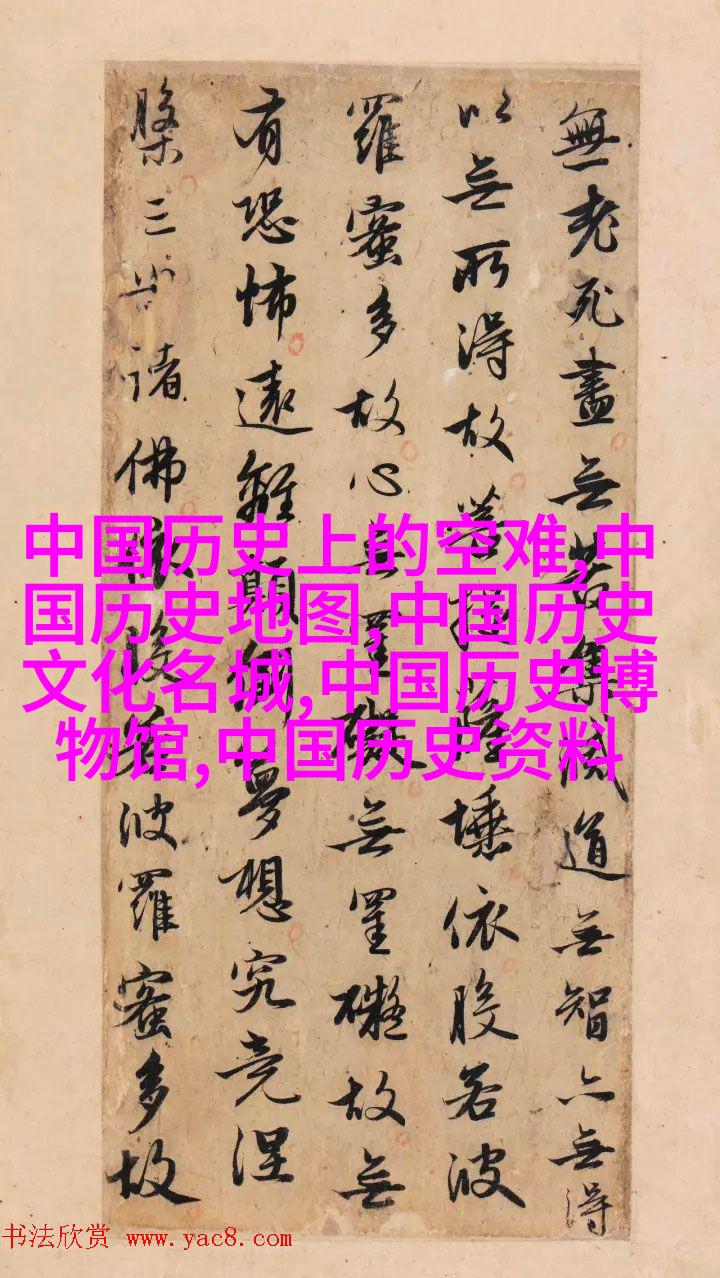 無老死盡无苦集滅道无智亦無得
以无所得故菩提薩埵依般若波
羅蜜多故心無罣礙无罣礙故無
有恐怖遠離顛倒夢想究竟涅
槃三世諸佛依般若波羅蜜多故
中国历史上的空难,中
国历史地图,中国历史
文化名城,中国历史博
物馆,中国历史资料
书法欣赏 www.yac8.com